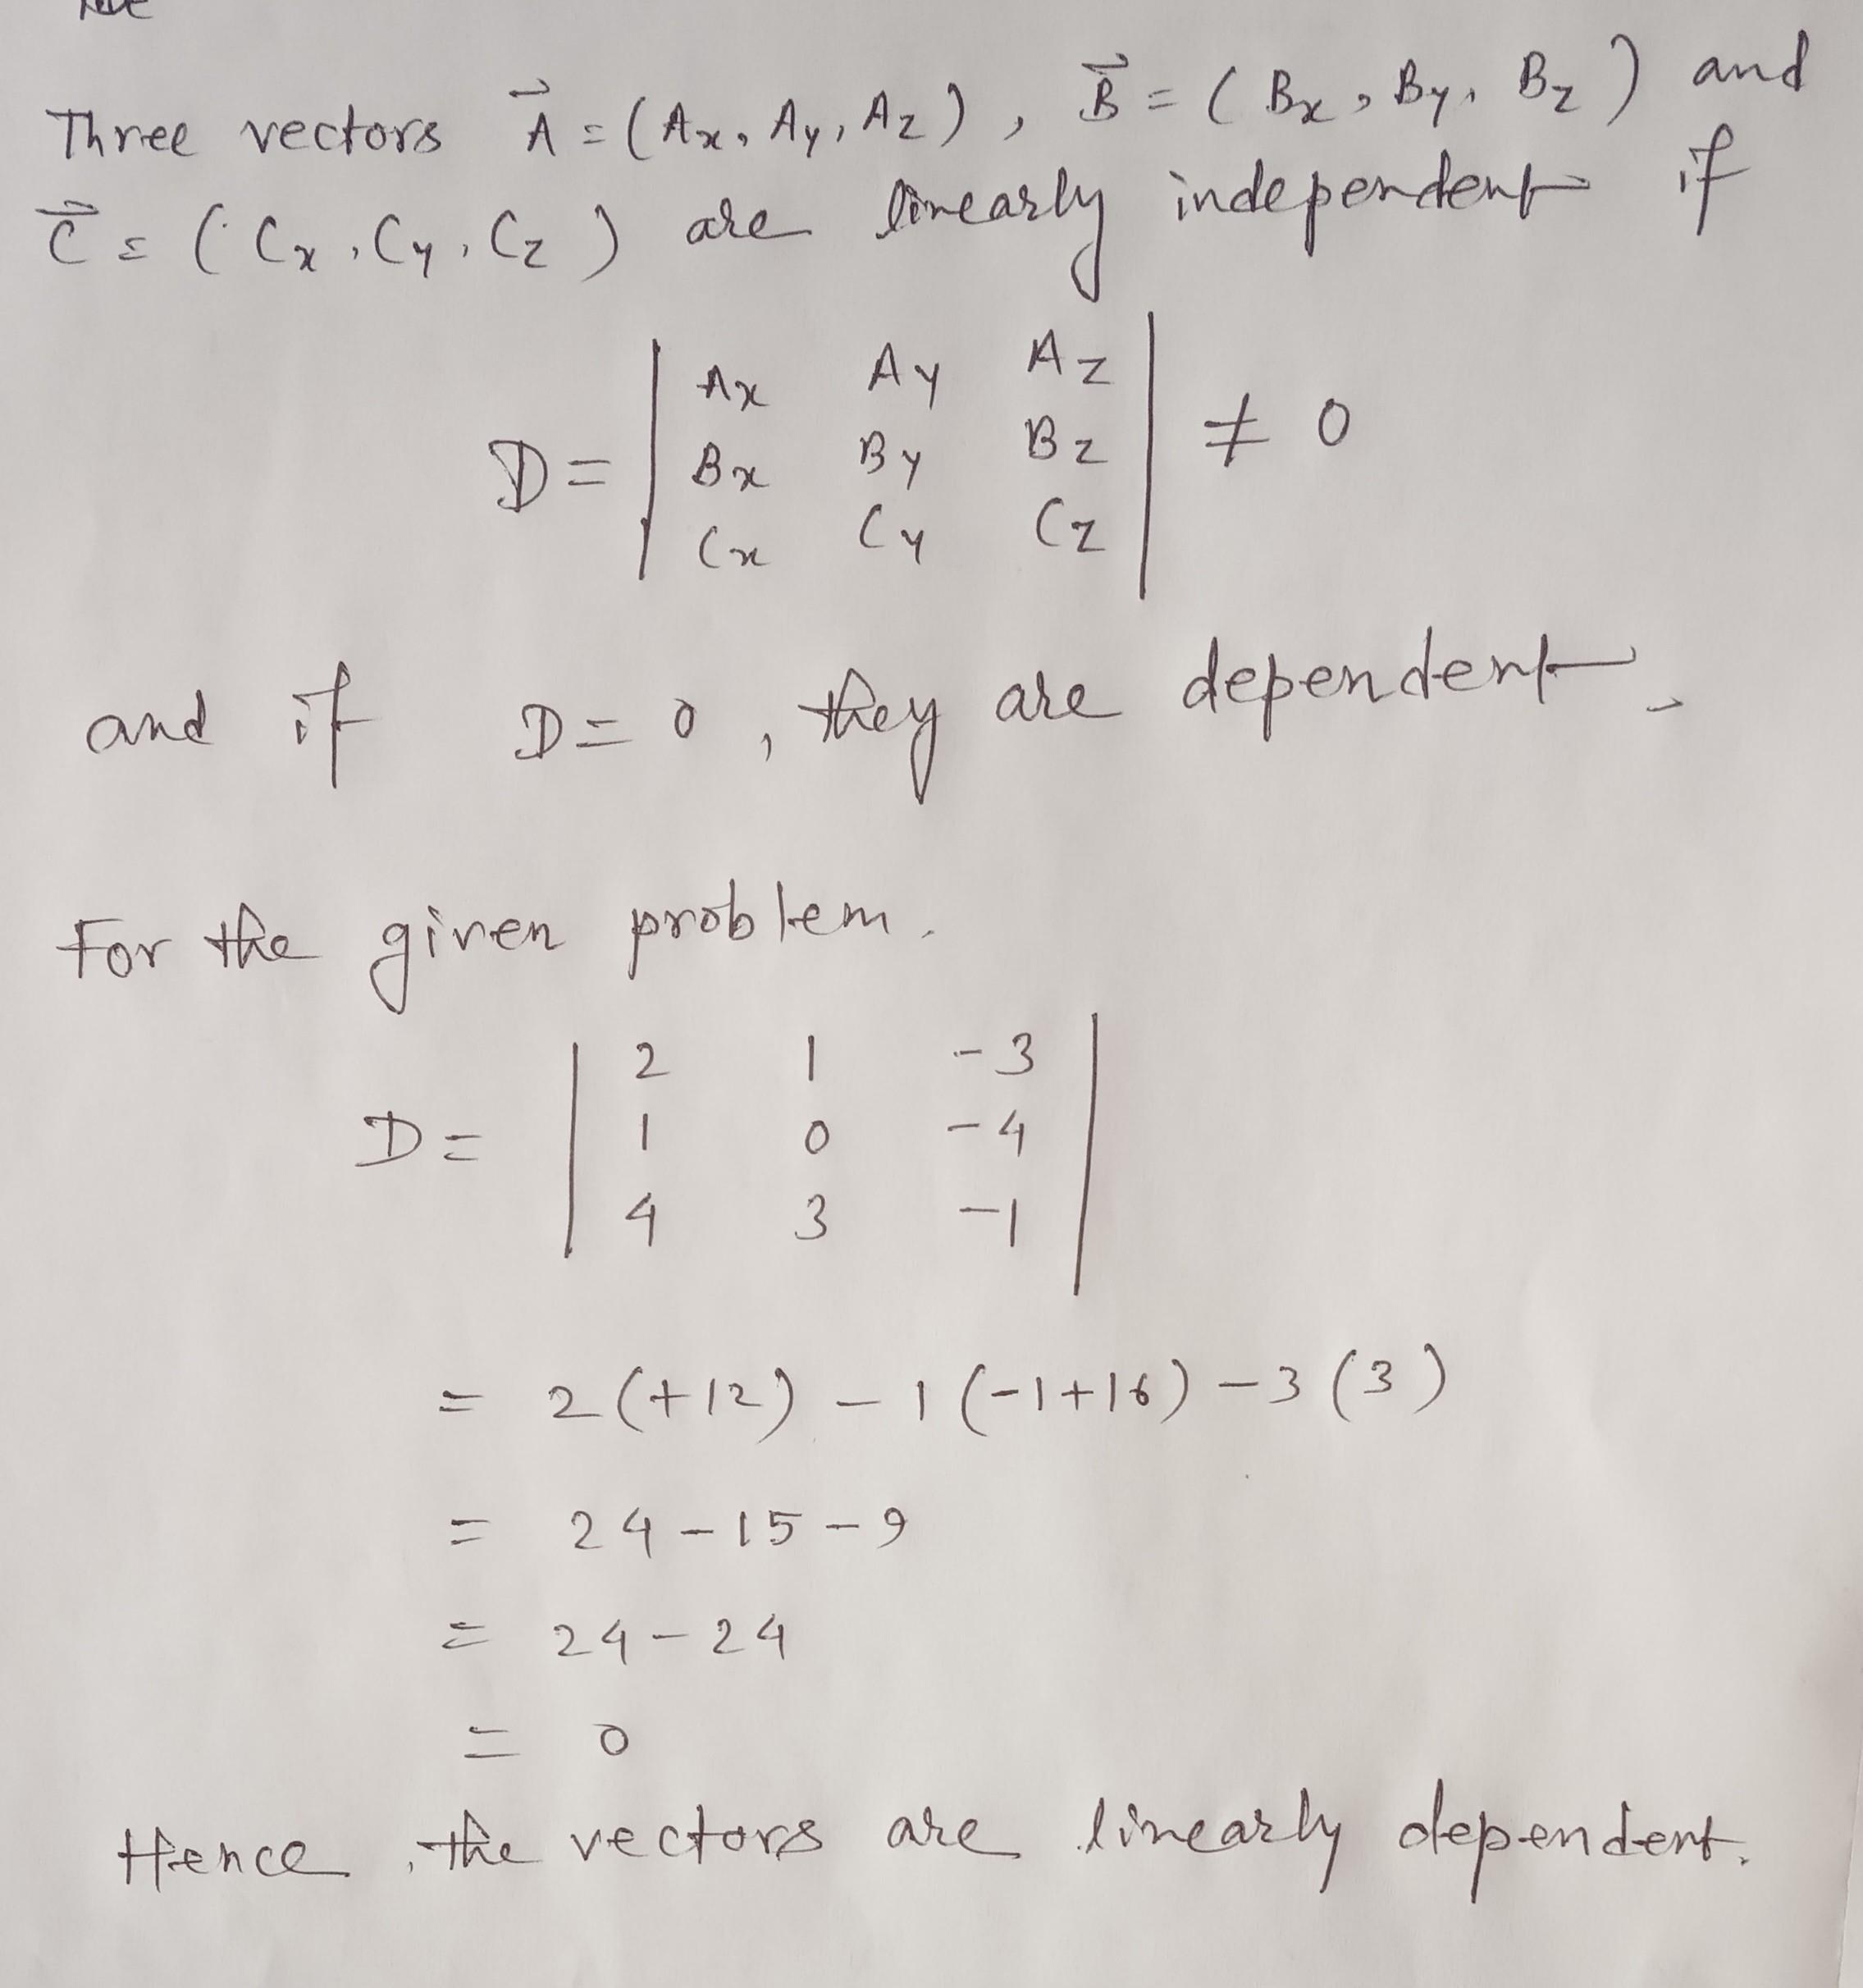 Three vectors A⃗ = (Ax, Ay, Az), B⃗ = (Bx, By, Bz) and
C⃗ = (Cx, Cy, Cz) are linearly independent if
D = | Ax Ay Az |
| Bx By Bz | ≠ 0
| Cx Cy Cz |
and if D = 0, they are dependent.
For the given problem.
| 2 1 -3 |
D = | 1 0 -4 |
| 4 3 -1 |
= 2(+12) - 1(-1+16) - 3(3)
= 24 - 15 - 9
= 24 - 24
= 0
Hence, the vectors are linearly dependent.